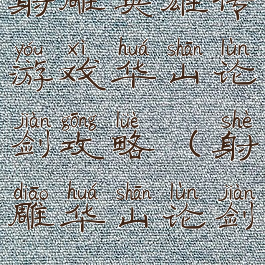 射雕英雄传
yóu xì huá shān lùn
游戏华山论
jiàn gōng lüè shè
剑攻略（射
diāo huá shān lùn jiàn
雕华山论剑